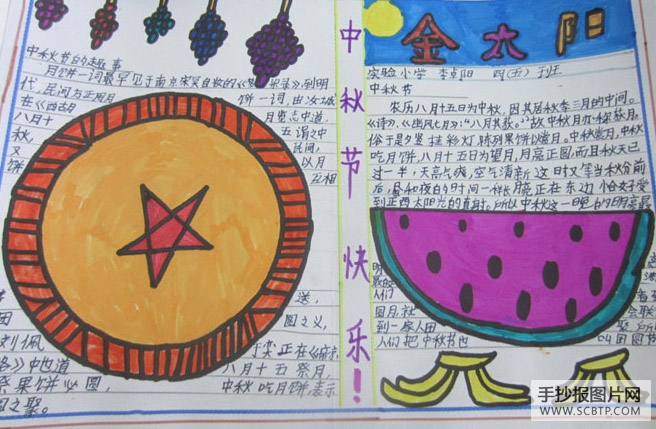 中秋节的趣事
月饼一词最早见于南宋吴自牧的《梦粱录》到明
代,民间为正阳月
饼一词,由
在《西湖
八月十
月意志中道,
秋,
五谓之中
又
民间,
饼
以月
互相
送,
圆之义,
刘佩
于实正在
洛》中也道
八月十五祭月,
祭果饼必圆,
中秋吃月饼表示
团之聚。
中秋节快乐!
金太阳
实验小学 李点阳 四(五)班
中秋节
农历八月十五日为中秋,因其居秋季三月的中间。
《诗》、《幽风七月》:“八月其获。”故中秋月亦称获月。
俗于是夕竖挂彩灯,陈列果饼以赏月。中秋赏月,中秋
吃月饼,八月十五日为望月,月亮正圆,而且秋天已
过一半,天高气爽,空气清新,这时又等当秋分前
后,昼和夜的时间一样长,月亮正在东边恰好受
到正西太阳光的直射,所以中秋这一晚的明亮是
明
人们
圆月,祝
会联
到一家人团
聚,所
人们把中秋节也
叫团圆节
手抄报图片网
WWW.SCBTP.COM